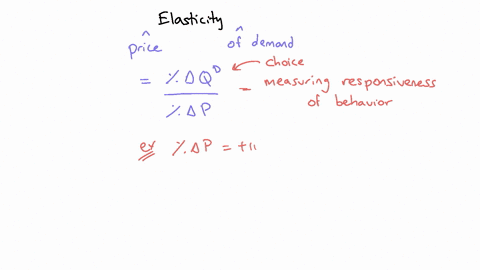 Elasticity
^ ^
price of demand
choice
= %ΔQᴰ / %ΔP - measuring responsiveness
of behavior
ex %ΔP = +11